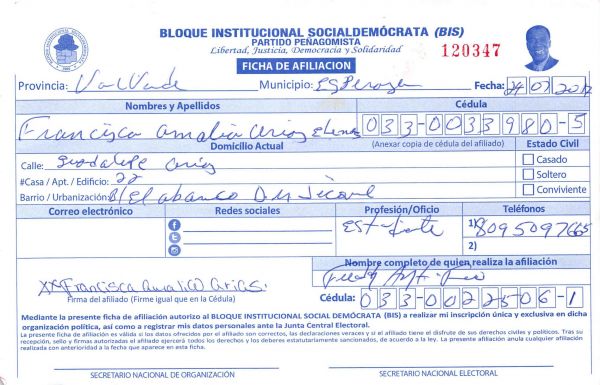 BLOQUE INSTITUCIONAL SOCIALDEMÓCRATA (BIS)
PARTIDO PEÑAGOMISTA
Libertad, Justicia, Democracia y Solidaridad
120347
FICHA DE AFILIACION
Provincia: Valverde Municipio: Esperanza Fecha: 24 07 2017
Nombres y Apellidos Cédula
Francisca Amalia Arias 033-0033980-5
Domicilio Actual (Anexar copia de cédula del afiliado) Estado Civil
Calle: Guadalupe Arias Casado
#Casa / Apt. / Edificio: 22 Soltero
Barrio / Urbanización: B/ El abanco Conviviente
Correo electrónico Redes sociales Profesión/Oficio Teléfonos
1) 8095097665
2)
Nombre completo de quien realiza la afiliación
XX Francisca Amalia Arias
Firma del afiliado (Firme igual que en la Cédula)
Cédula: 033-0022506-1
Mediante la presente ficha de afiliación autorizo al BLOQUE INSTITUCIONAL SOCIAL DEMÓCRATA (BIS) a realizar mi inscripción única y exclusiva en dicha
organización política, así como a registrar mis datos personales ante la Junta Central Electoral.
La presente ficha de afiliación es válida si los datos ofrecidos por el afiliado son correctos, las declaraciones veraces y si el afiliado tiene el disfrute de sus derechos civiles y políticos. Tras su
recepción, sello y firmas autorizadas el afiliado ejercerá todos los derechos y los deberes estatutariamente sancionados, de acuerdo a la ley. La presente afiliación anula cualquier afiliación
realizada con anterioridad a la fecha que aparece en esta ficha.
SECRETARIO NACIONAL DE ORGANIZACIÓN SECRETARIO NACIONAL ELECTORAL